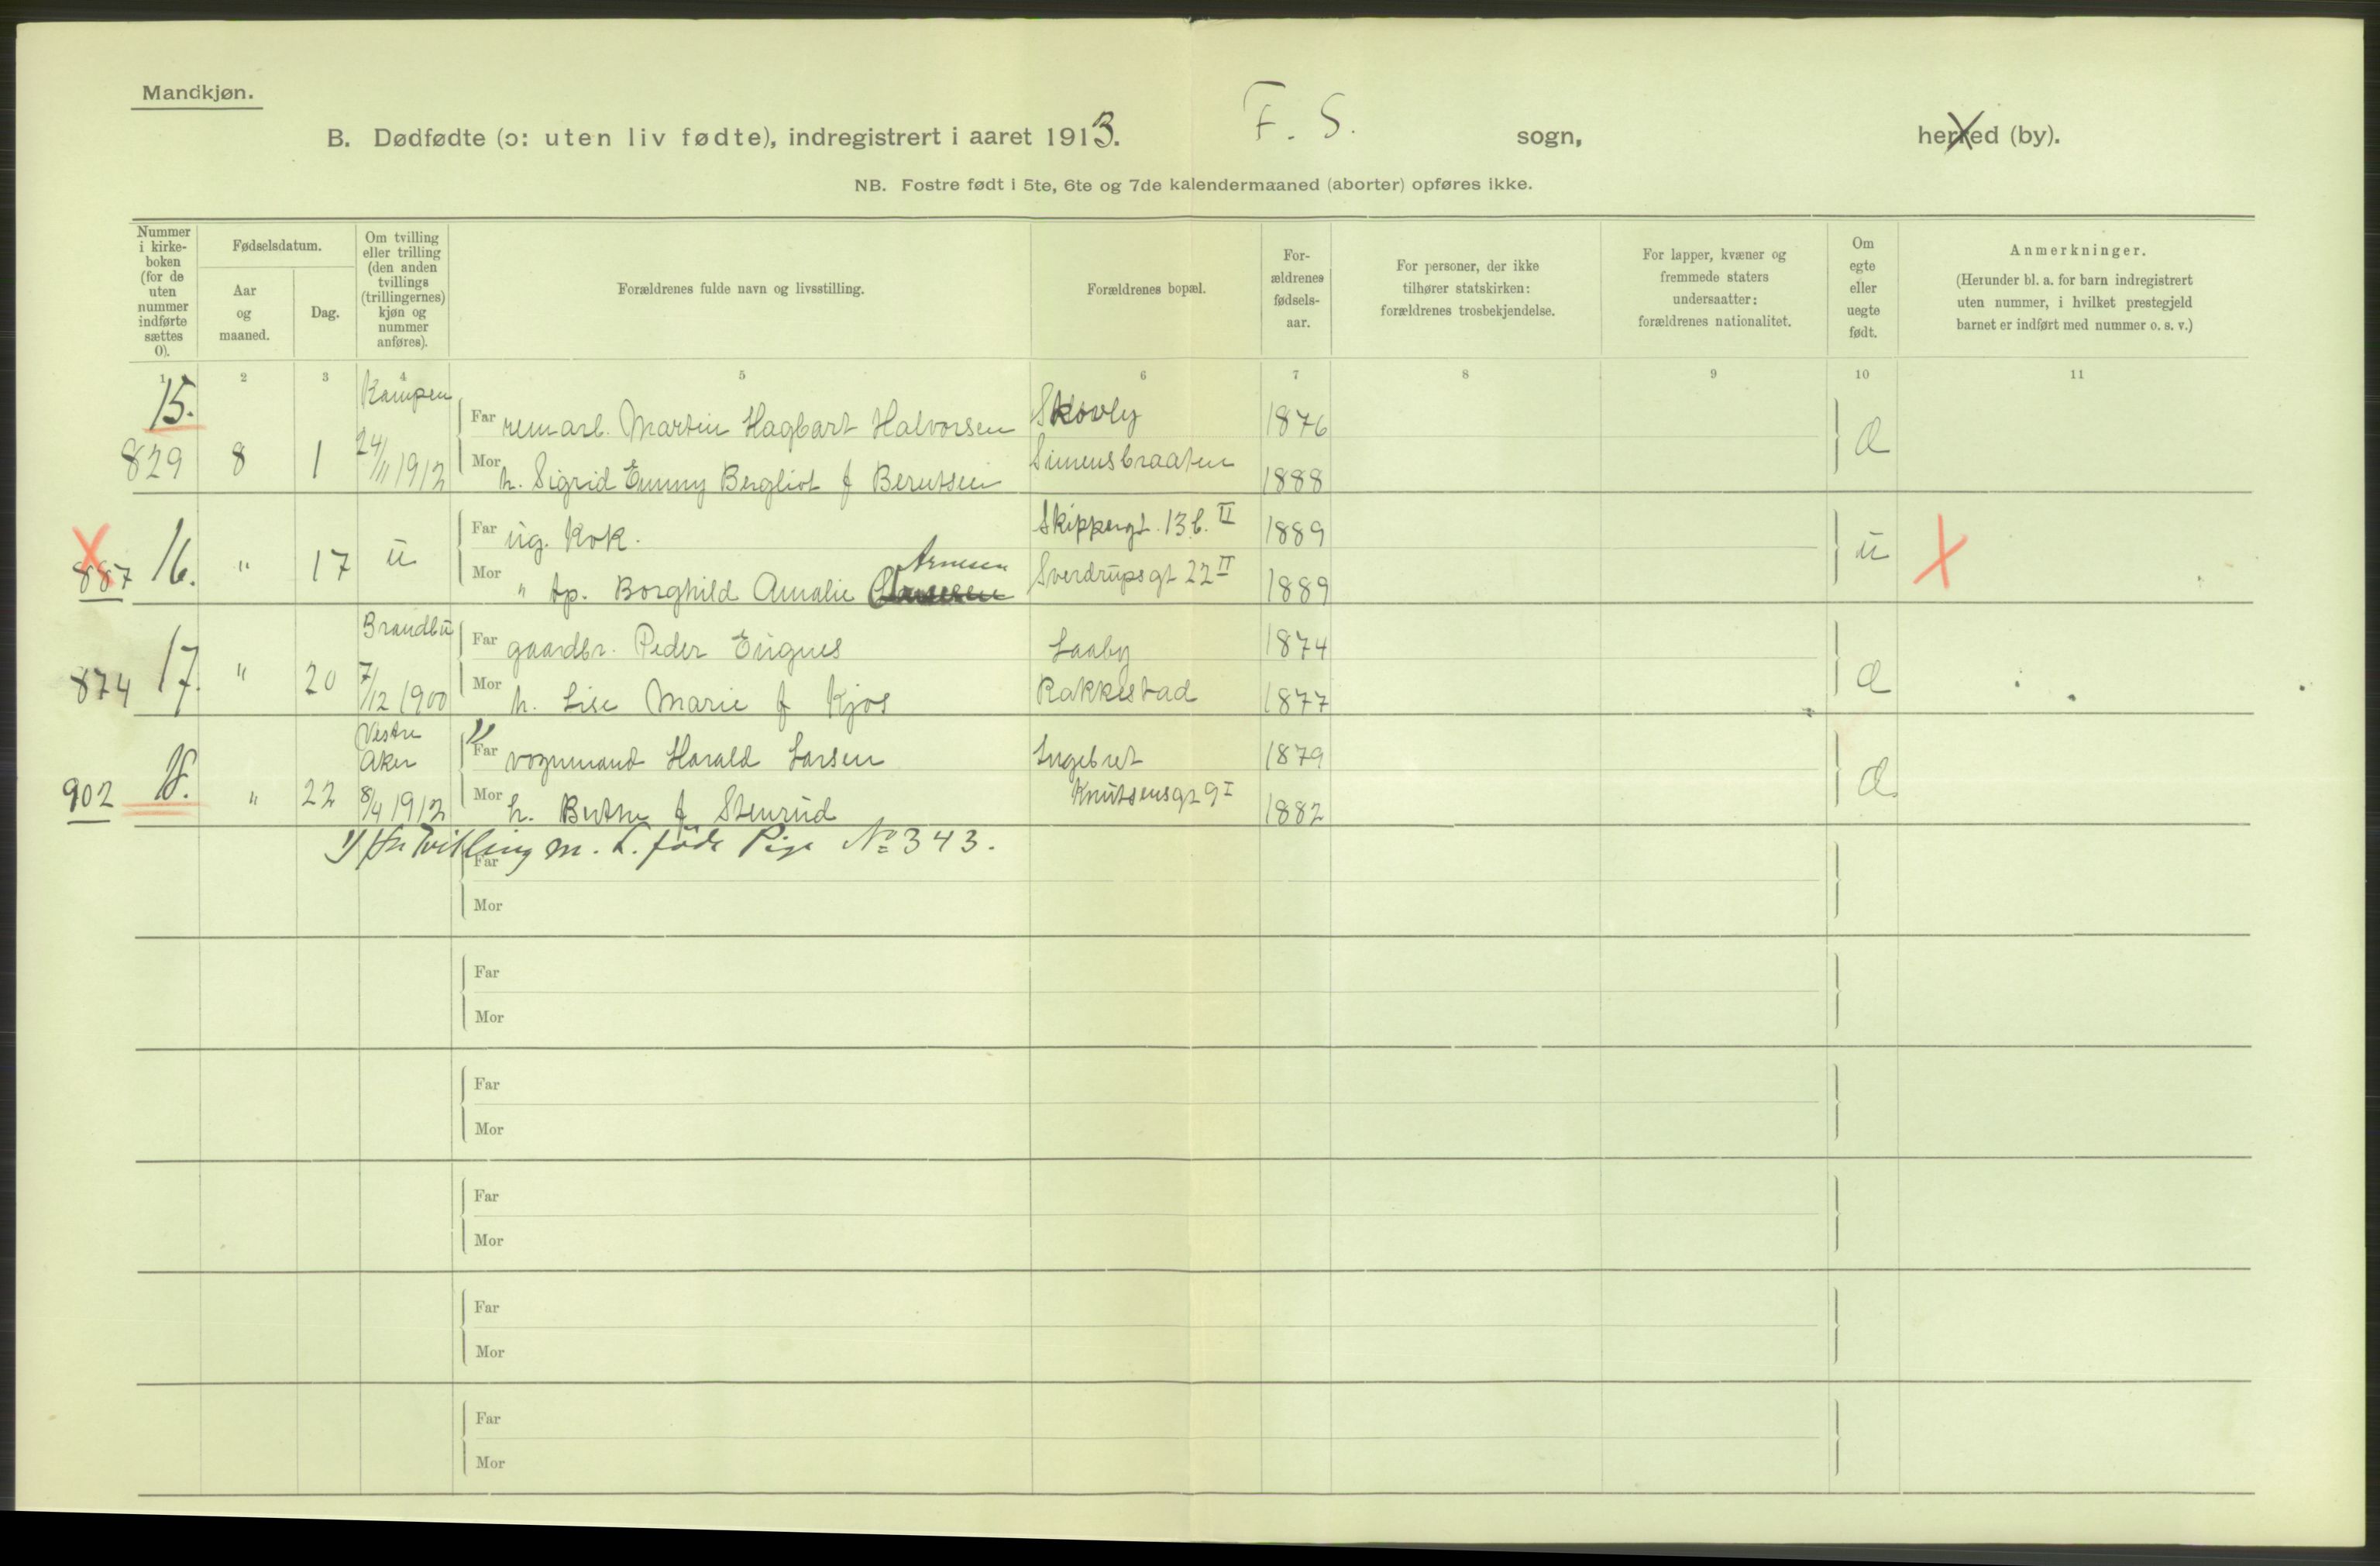 Mandkjøn.
B. Dødfødte (ɔ: uten liv fødte), indregistrert i aaret 1913. F. S. sogn, herred (by).
NB. Fostre født i 5te, 6te og 7de kalendermaaned (aborter) opføres ikke.
Nummer i kirke-boken (for de uten nummer indførte sættes 0).
Fødselsdatum.
Aar og maaned.
Dag.
Om tvilling eller trilling (den anden tvillings (trillingernes) kjøn og nummer anføres).
Forældrenes fulde navn og livsstilling.
Forældrenes bopæl.
For-ældrenes fødsels-aar.
For personer, der ikke tilhører statskirken: forældrenes trosbekjendelse.
For lapper, kvæner og fremmede staters undersaatter: forældrenes nationalitet.
Om egte eller uegte født.
Anmerkninger.
(Herunder bl. a. for barn indregistrert uten nummer, i hvilket prestegjeld barnet er indført med nummer o. s. v.)
1 2 3 4 5 6 7 8 9 10 11
15. Kampen Far Martin Hagbart Halvorsen Skovly 1876
829 8 1 24/11 1912 Mor h. Sigrid Emmy Bergliot f Berntsen Simensbraaten 1888
Far ug. Kok. Skippergt. 13 b. II 1889
887 16. " 17 ü ü X
Mor " tp. Borghild Amalie Arnesen Sverdrupsgt 22 II 1889
Brandbu Far gaardbr. Peder Engnes Laaby 1874
874 17. " 20 7/12 1900 Mor h. Lise Marie f Kjos Rakkestad 1877
Vestre Aker 1) Far vognmand Harald Larsen Ingebret 1879
902 18. " 22 8/4 1912 Mor h. Berthe f Stenrud Knutsensgt 9 I 1882
1) Tvilling m. L. føde Pige No 343.
Far
Mor
Far
Mor
Far
Mor
Far
Mor
Far
Mor
Far
Mor